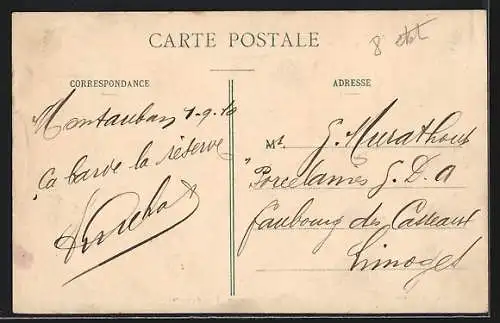 8
CARTE POSTALE
CORRESPONDANCE
ADRESSE
Montauban 1-9.10
Ça barde la réserve
Mr. G. Murathout
"Porcelaines G. D. A
faubourg des Casseaux
Limoges